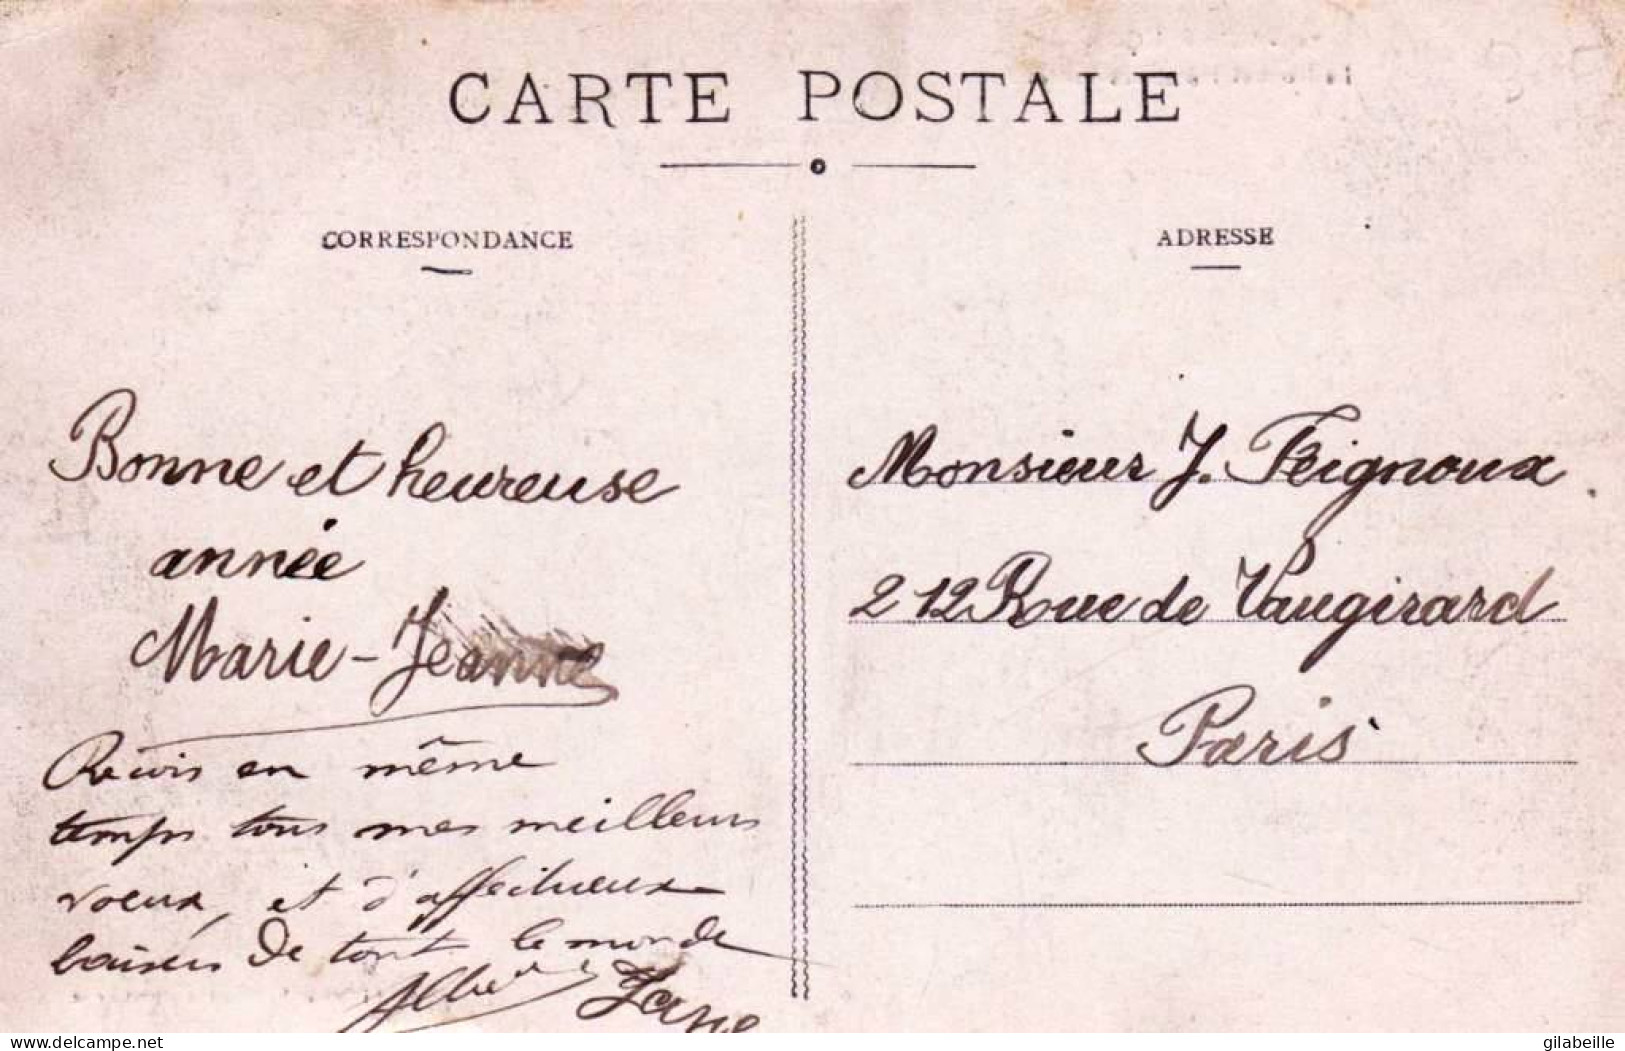 CARTE POSTALE
CORRESPONDANCE
ADRESSE
Bonne et heureuse
année
Marie-Jeanne
Reçois en même
temps tous mes meilleurs
voeux, et d'affectueux
baisers de tout le monde
Monsieur J. Feignoux
212 Rue de Vaugirard
Paris
delcampe.net
gilabeille